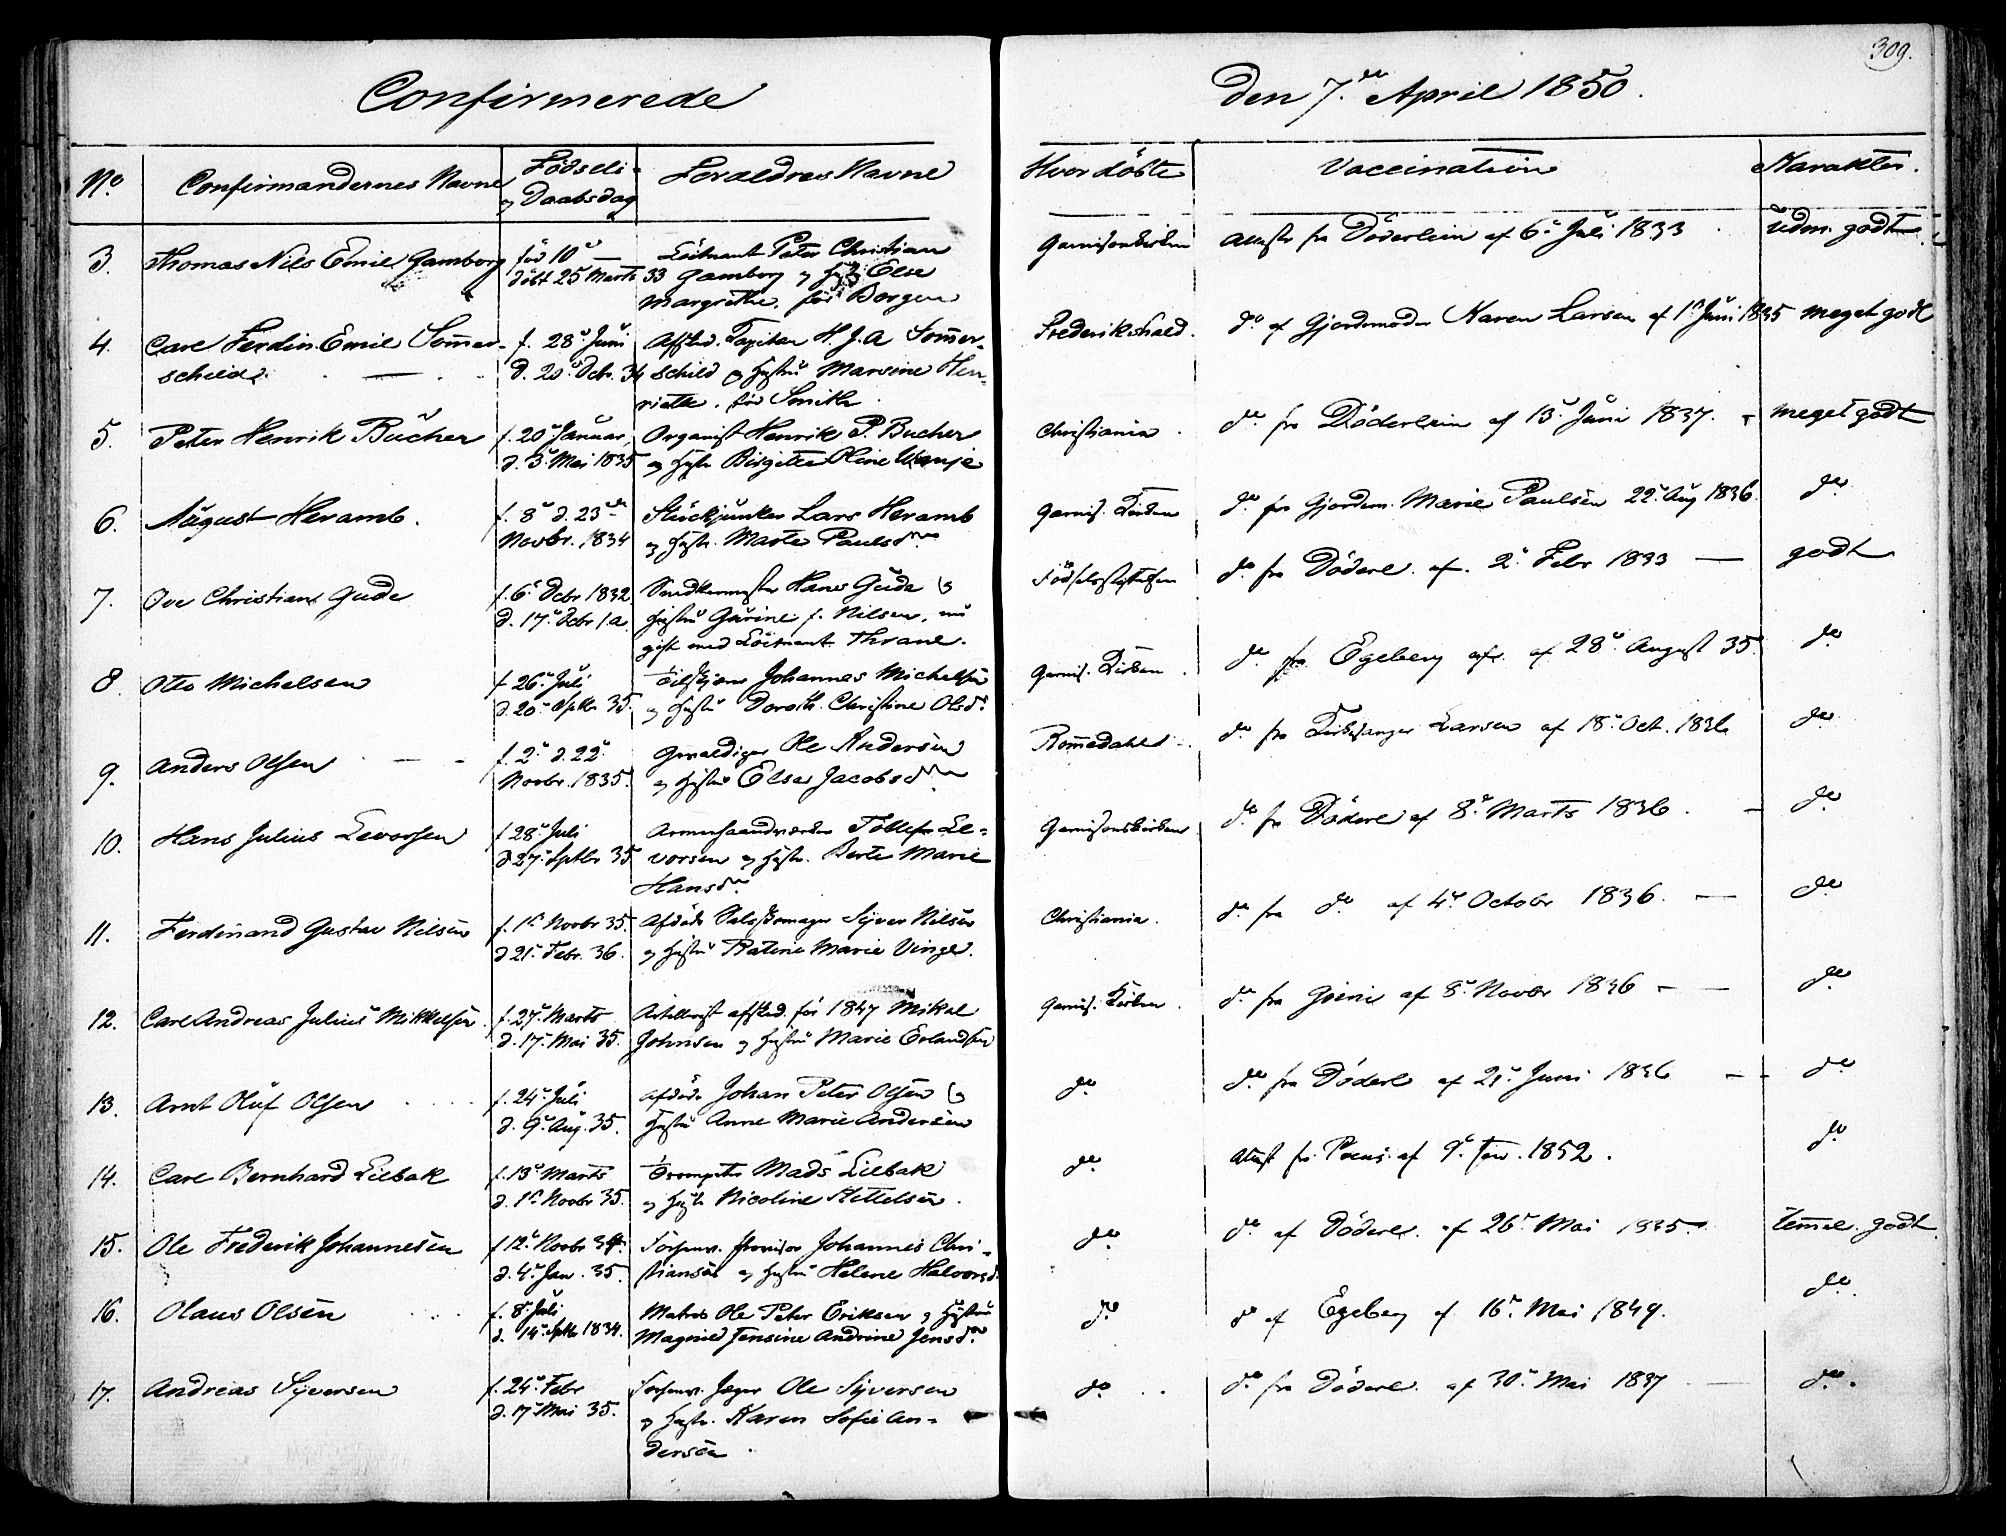 309.
Confirmerede
Den 7de April 1850.
No
Confirmandernes Navne
Fødsels-
og Daabsdag
Forældres Navne
Hvor døbte
Vaccination
Karakter.
3. Thomas Nils Emil Gamborg
fød 10de —
døbt 25 Marts 33
Løitnant Peter Christian
Gamborg og Else
Margrethe, fød Borgen
Garnisonskirken
Attest fra Døderlein af 6te Juli 1833
Udm. godt
4. Carl Ferdin. Emil Sommer-
schild.
f. 28de Juni
d. 20de Octbr. 34
Afsked. Capitain H. J. A. Sommer-
schild og Hustru Marsine Hen-
riette, fød Smith
Frederikshald.
do af Gjordemoder Karen Larsen af 1ste Juni 1835
Meget godt
5. Peter Henrik Bücher
f. 20de Januar,
d. 3de Mai 1835
Organist Henrik P. Bucher
og Hustr. Birgitte Oline Wanje
Christiania.
do fra Døderlein af 13de Juni 1837.
Meget godt
6. August Heramb.
f. 8de d. 23de
Novbr. 1834
Stückjunker Lars Heramb
og Hustr. Marte Paulsdtr
Garnis. Kirken
do fra Gjordem. Marie Paulsen 22de Aug 1836.
do
7. Ove Christian Gude
f. 6te Dcbr 1832
d. 17de Dcbr s.a.
Hans Gude og
Hustru Gurine f. Nilsen, nu
gift med Løitnant Thrane.
Fødselsstiftelsen
do fra Døderl. af 2de Febr 1833 —
godt
8. Otto Michelsen
f. 26de Juli
d. 20de Septbr 35.
Johannes Michelsen
og Hustru Doroth. Christine Olsdr.
Garnis. Kirken.
do fra Egeberg af 28de August 35
do
9. Anders Olsen
f. 2de d. 22de
Novbr. 1835.
Gevaldiger Ole Andersen
og Hustru Else Jacobsdtr
Romedahl
do fra Kirkesanger Larsen af 18de Oct. 1836
do
10. Hans Julius Levorsen
f. 28de Juli
d. 27de Septbr 35
Tollef Le-
vorsen og Hustr. Berte Marie
Hansdtr
Garnisonskirken
do fra Døderl af 8de Marts 1836.
do
11. Ferdinand Gustav Nilsen
f. 1ste Novbr 35.
d. 21de Febr. 36.
Afdøde Syver Nilsen
og Hustru Katrine Marie Vinger.
Christiania.
do fra do af 4de October 1836. —
do
12. Carl Andreas Julius Mikkelsen
f. 27de Marts
d. 17de Mai 35.
Artillerist afsked. før 1847 Mikal
Johnsen og Hustru Marie Erlandsen
Garnis. Kirken.
do fra af 8de Novbr 1836 —
do
13. Arnt Oluf Olsen
f. 24de Juli
d. 9de Aug. 35.
Afdøde Johan Peter Olsen og
Hustru Anne Marie Andersen
do
do fra Døderl af 21de Juni 1836 —
do
14. Carl Bernhard Lilbak
f. 13de Marts
d. 1ste Novbr 35.
Trompeter Mads Lilbak
og Hustr. Nicoline Kittelsen.
do
Attest fra af 9de Jan. 1852.
do
15. Ole Frederik Johannesen
f. 12te Novbr 34.
d. 4de Jan. 35.
Johannes Chri-
stiansen og Hustru Helene Halvorsd.
do
do af Døderl. af 26de Mai 1835
Temmel. godt.
16. Olaus Olsen
f. 8de Juli
d. 14de Septbr 1834.
Matros Ole Peter Eriksen og Hustru
Magnild Jensine Andrine Jensdr.
do
do af Egeberg af 16de Mai 1849.
do
17. Andreas Syversen
f. 24de Febr
d. 17de Mai 35.
Jæger Ole Syversen
og Hustr. Karen Sofie An-
dersen.
do
do fra Døderl. af 30de Mai 1837
do